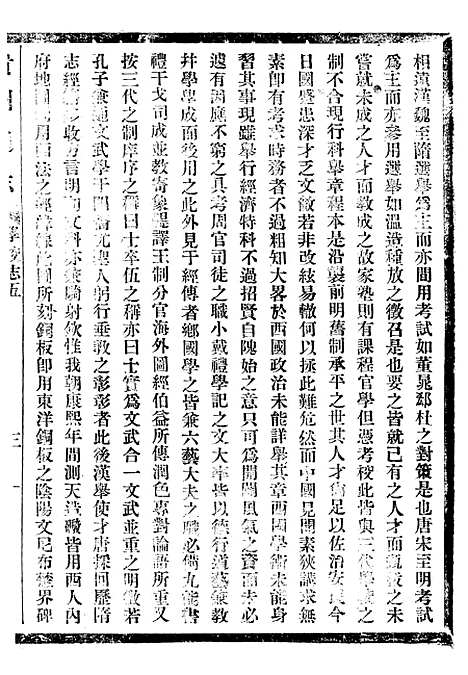 相遠漢魏至隋選舉爲主而亦間用考試如董晁郄杜之對策是也唐宋至明考試
爲主而亦參用選舉如溫造种放之徵召是也要之皆就已有之人才而甄拔之未
嘗就未成之人才而敎成之故家塾則有課程官學但憑考校此皆與三代學校之
制不合現行科舉章程本是沿襲前明舊制承平之世其人才尙足以佐治安民今
日國蹙患深才乏文敝若非改絃易轍何以拯此艱危然而中國見聞素狹講求無
素卽有考求時務者不過粗知大畧於西國政治未能詳舉其章西國學術未能身
習其事現雖舉行經濟特科不過招賢自隗始之意只可爲開闢風氣之資而未必
遽有因應不窮之具考周官司徒之職小戴禮學記之文大率皆以德行道藝兼敎
幷學學成而後用之此外見於經傳者鄕國學之皆兼六藝大夫之職必備九能書
禮干戈司成並敎寄象鞮譯王制分官海外圖經伯益所傳潤色專對論語所重又
按三代之制庠序之稱曰士卒伍之稱亦曰士實爲文武合一文武並重之明徵若
孔子兼通文武學于四裔尤聖人躬行垂敎之彰彰者此後漢舉使才唐採回歷隋
志經籍多收方言明初文科亦兼騎射欽惟我朝康熙年間測天造礮皆用西人內
府地圖卽用西法之經緯線此圖所刻銅板卽用東洋銅板之陰陽文尼布楚界碑
學校志五
三